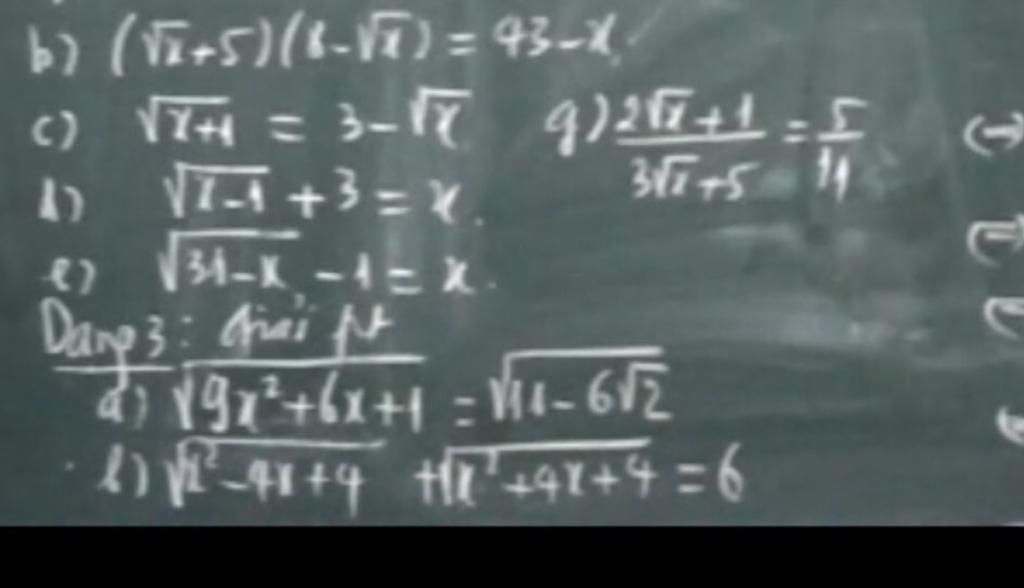 b) (√x+5)(8-√x) = 43-x.
c) √(x+1) = 3-√x g) (2√x+1)/(3√x+5) = 5/11 (=)
d) √(x-1) + 3 = x.
e) √(31-x) - 1 = x.
Dạng 3: Giải pt
a) √(9x²+6x+1) = √(11-6√2)
b) √(x²-4x+4) + √(x²+4x+4) = 6